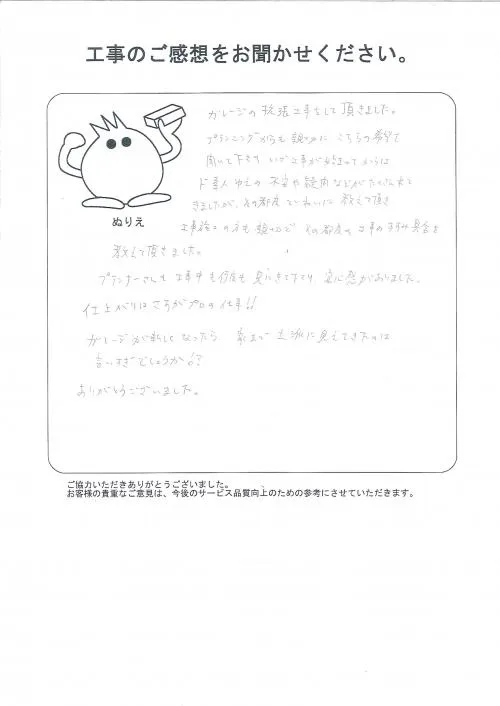 工事のご感想をお聞かせください。
ガレージの拡張工事をして頂きました。
プランニングからも親切に こちらの希望を
聞いて下さり いざ工事が始まってからは
ド素人ゆえの 不安や疑問などがたくさん出て
きましたが、その都度 ていねいに 教えて頂き
ぬりえ
工事施工の方も親切で その都度の工事のすすみ具合を
教えて頂きました。
プランナーさんも 工事中も何度も 見にきて下さり、安心感がありました。
仕上がりは さすがプロの仕事!!
ガレージが新しくなったら 家まで 立派に見えてきたのは
言いすぎでしょうか!?
ありがとうございました。
ご協力いただきありがとうございました。
お客様の貴重なご意見は、今後のサービス品質向上のための参考にさせていただきます。